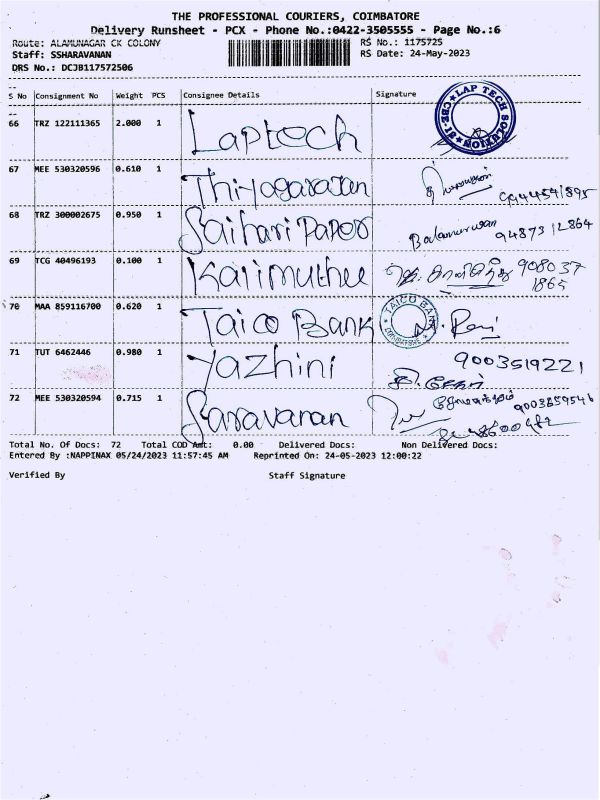 THE PROFESSIONAL COURIERS, COIMBATORE
Delivery Runsheet - PCX - Phone No.:0422-3505555 - Page No.:6
Route: ALAMUNAGAR CK COLONY RS No.: 1175725
Staff: SSHARAVANAN RS Date: 24-May-2023
DRS No.: DCJB117572506
S No Consignment No Weight PCS Consignee Details Signature
66 TRZ 122111365 2.000 1 Laptech LAP TECH SOLUTION
67 MEE 530320596 0.610 1 Thiyagarajan
68 TRZ 300002675 0.950 1 Saihari Paper Balamurugan 94873 12864
69 TCG 40496193 0.100 1 Karimuthu 908037
1865
70 MAA 859116700 0.620 1 Taico Bank TAICO BANK COIMBATORE
71 TUT 6462446 0.980 1 Yazhini 9003519221
72 MEE 530320594 0.715 1 Saravanan
Total No. Of Docs: 72 Total COD Amt: 0.00 Delivered Docs: Non Delivered Docs:
Entered By :NAPPINAX 05/24/2023 11:57:45 AM Reprinted On: 24-05-2023 12:00:22
Verified By Staff Signature